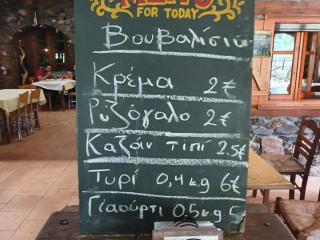 MENU
FOR TODAY
Βουβαλίσιο
Κρέμα 2€
Ρυζόγαλο 2€
Καζάν τιπί 2.5€
Τυρί 0,4κg 6€
Γιαούρτι 0.5κg 5